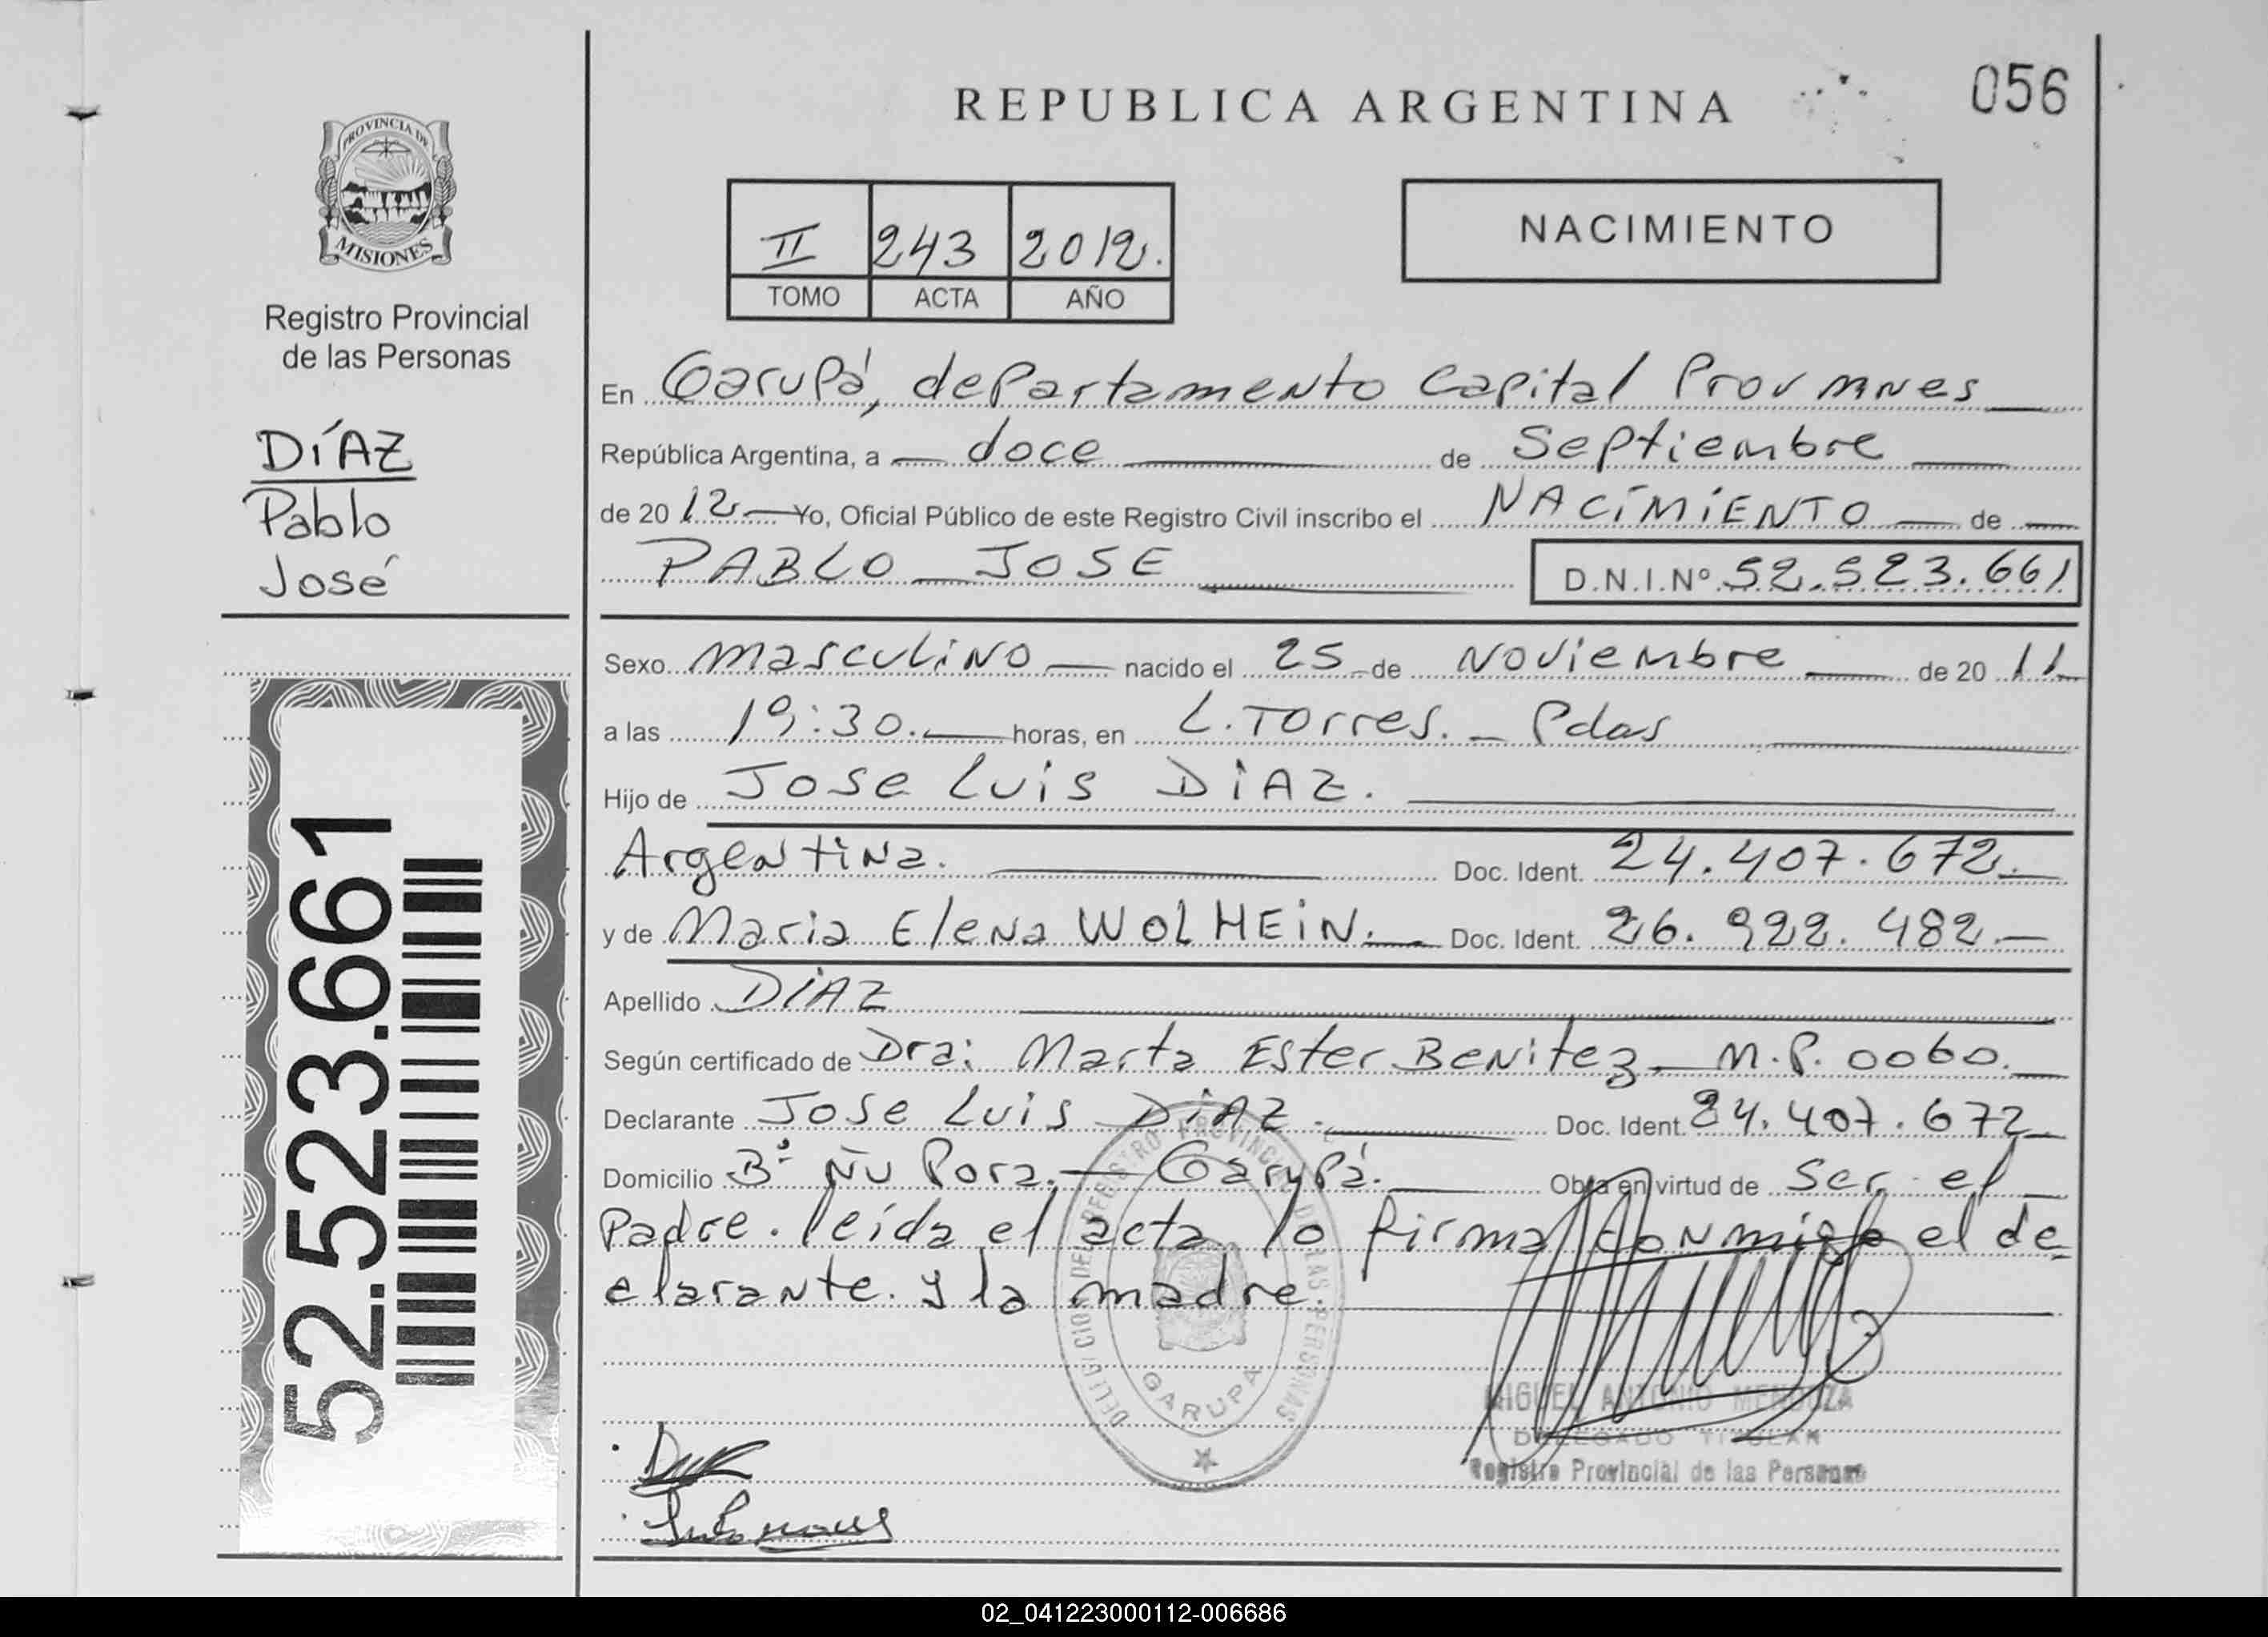 REPUBLICA ARGENTINA
056
PROVINCIA DE
MISIONES
Registro Provincial
de las Personas
DÍAZ
Pablo
José
52.523.661
II 243 2012.
TOMO ACTA AÑO
NACIMIENTO
En Garupá, departamento Capital Prov
República Argentina, a doce de Septiembre
de 2012 Yo, Oficial Público de este Registro Civil inscribo el NACIMIENTO de
PABLO JOSE D.N.I.Nº 52.523.661
Sexo masculino nacido el 25 de Noviembre de 2011
a las 19:30. horas, en L. Torres. - Pdas
Hijo de Jose Luis DIAZ.
Argentina. Doc. Ident. 24.407.672.
y de Maria Elena WOLHEIN. Doc. Ident. 26.922.482.-
Apellido DIAZ
Según certificado de Dra: Marta Ester Benitez - M.P. 0060.
Declarante Jose Luis DIAZ. Doc. Ident. 24.407.672
Domicilio Bº Ñu Pora.- Garupá. Obra en virtud de Ser el
Padre. leida el acta lo firma conmigo el de
clarante. y la madre.
DELEGACION DEL REGISTRO PROVINCIAL DE LAS PERSONAS
GARUPA
MIGUEL ANTONIO MENDOZA
DELEGADO TITULAR
Registro Provincial de las Personas
02_041223000112-006686